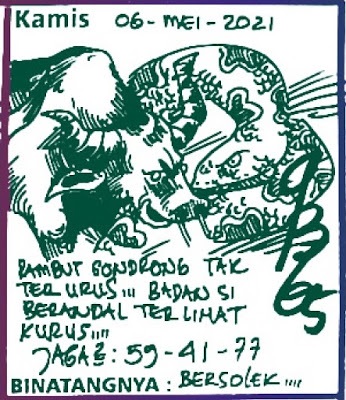 Kamis 06-MEI-2021
RAMBUT GONDRONG TAK
TERURUS,,, BADAN SI
BERANDAL TERLIHAT
KURUS,,,,
JAGA2: 59-41-77
BINATANGNYA: BERSOLEK,,,,